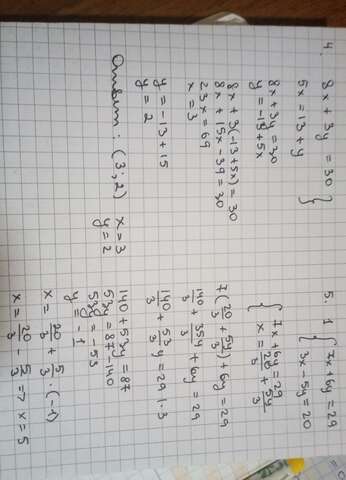 4. 8x + 3y = 30
5x = 13 + y
8x + 3y = 30
y = -13 + 5x
8x + 3(-13 + 5x) = 30
8x + 15x - 39 = 30
23x = 69
x = 3
y = -13 + 15
y = 2
x = 3
y = 2
Ответ: (3; 2)
5. 1 { 7x + 6y = 29
3x - 5y = 20
{ 7x + 6y = 29
x = 20/3 + 5y/3
7(20/3 + 5y/3) + 6y = 29
140/3 + 35y/3 + 6y = 29
140/3 + 53/3 y = 29 | · 3
140 + 53y = 87
53y = 87 - 140
53y = -53
y = -1
x = 20/3 + 5/3 · (-1)
x = 20/3 - 5/3 => x = 5